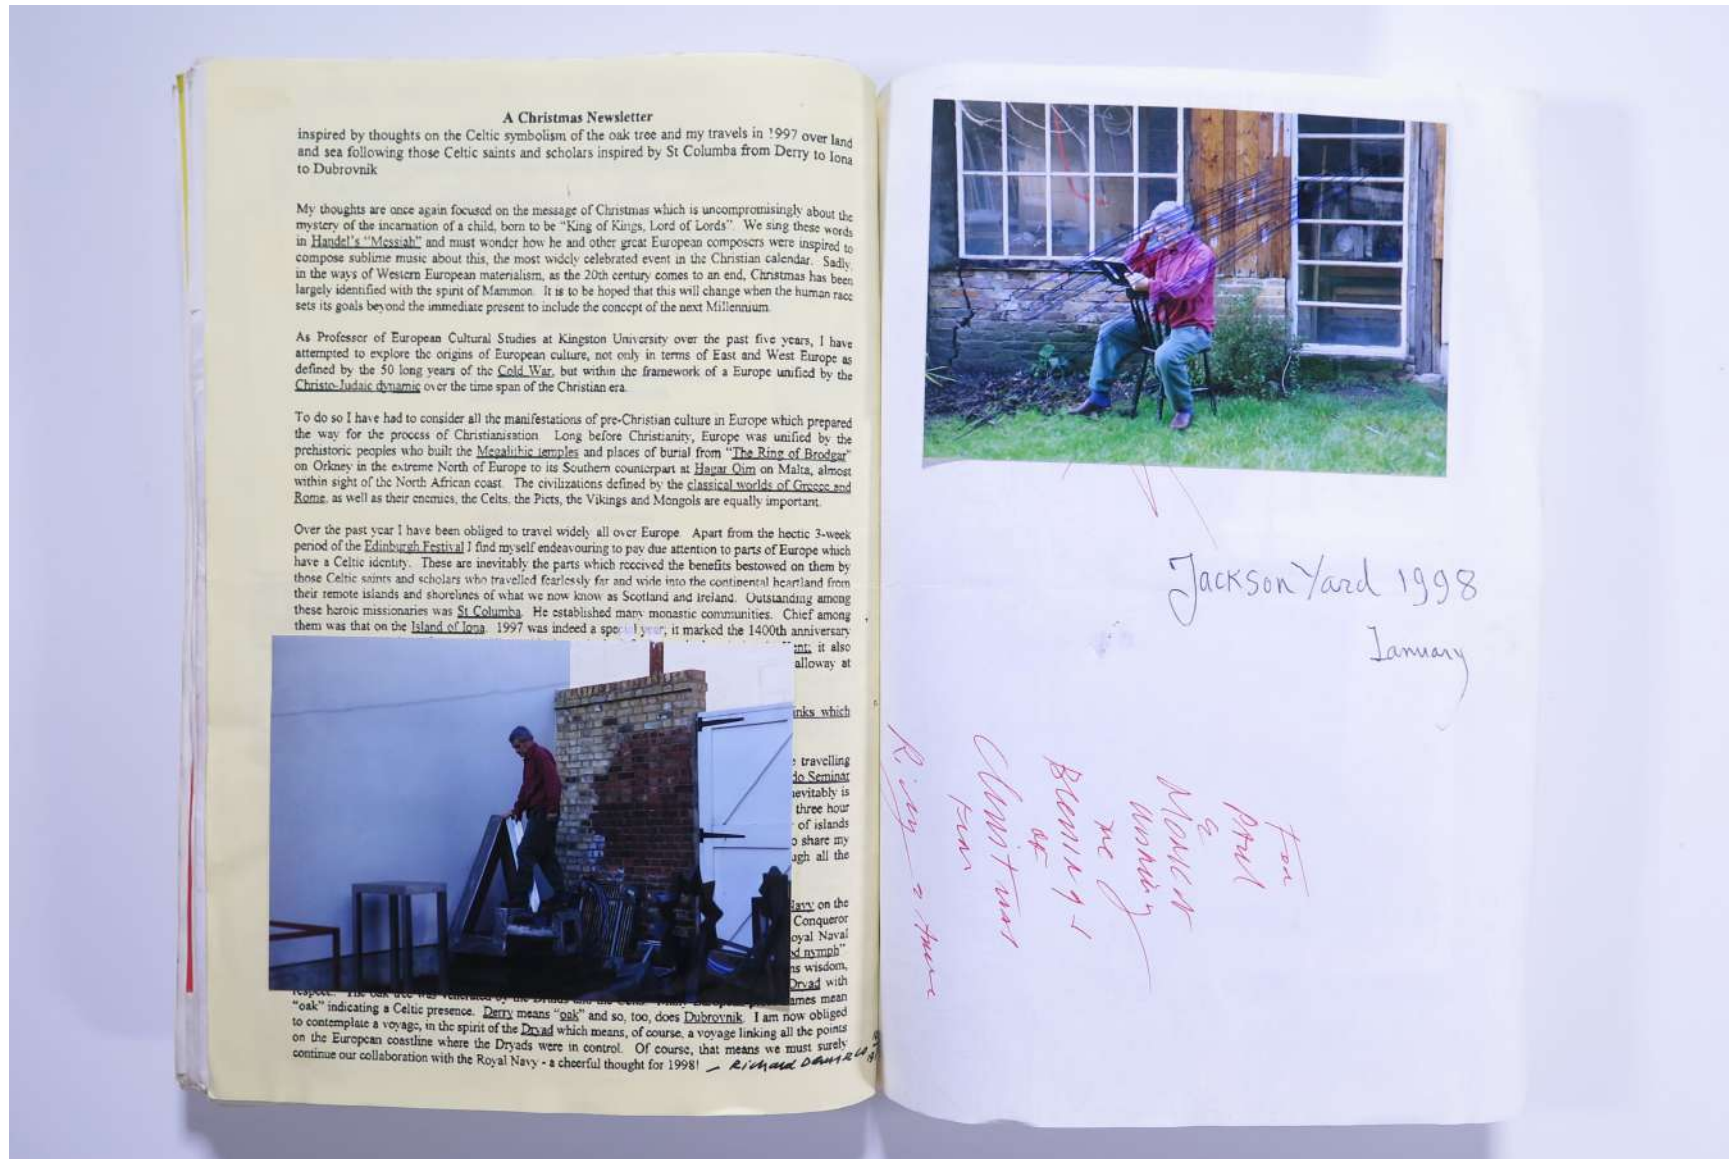 A Christmas Newsletter
inspired by thoughts on the Celtic symbolism of the oak tree and my travels in 1997 over land
and sea following those Celtic saints and scholars inspired by St Columba from Derry to Iona
to Dubrovnik
My thoughts are once again focused on the message of Christmas which is uncompromisingly about the
mystery of the incarnation of a child, born to be “King of Kings, Lord of Lords”. We sing these words
in Handel's “Messiah” and must wonder how he and other great European composers were inspired to
compose sublime music about this, the most widely celebrated event in the Christian calendar. Sadly,
in the ways of Western European materialism, as the 20th century comes to an end, Christmas has been
largely identified with the spirit of Mammon. It is to be hoped that this will change when the human race
sets its goals beyond the immediate present to include the concept of the next Millennium.
As Professor of European Cultural Studies at Kingston University over the past five years, I have
attempted to explore the origins of European culture, not only in terms of East and West Europe as
defined by the 50 long years of the Cold War, but within the framework of a Europe unified by the
Christo-Judaic dynamic over the time span of the Christian era.
To do so I have had to consider all the manifestations of pre-Christian culture in Europe which prepared
the way for the process of Christianisation. Long before Christianity, Europe was unified by the
prehistoric peoples who built the Megalithic temples and places of burial from “The Ring of Brodgar”
on Orkney in the extreme North of Europe to its Southern counterpart at Hagar Qim on Malta, almost
within sight of the North African coast. The civilizations defined by the classical worlds of Greece and
Rome, as well as their enemies, the Celts, the Picts, the Vikings and Mongols are equally important.
Over the past year I have been obliged to travel widely all over Europe. Apart from the hectic 3-week
period of the Edinburgh Festival I find myself endeavouring to pay due attention to parts of Europe which
have a Celtic identity. These are inevitably the parts which received the benefits bestowed on them by
those Celtic saints and scholars who travelled fearlessly far and wide into the continental heartland from
their remote islands and shorelines of what we now know as Scotland and Ireland. Outstanding among
these heroic missionaries was St Columba. He established many monastic communities. Chief among
them was that on the Island of Iona. 1997 was indeed a special year; it marked the 1400th anniversary
it also
alloway at
inks which
travelling
do Seminar
nevitably is
three hour
of islands
o share my
ugh all the
Navy on the
Conqueror
oyal Naval
d nymph”
ns wisdom,
Dryad with
ames mean
“oak” indicating a Celtic presence. Derry means “oak” and so, too, does Dubrovnik. I am now obliged
to contemplate a voyage, in the spirit of the Dryad which means, of course, a voyage linking all the points
on the European coastline where the Dryads were in control. Of course, that means we must surely
continue our collaboration with the Royal Navy - a cheerful thought for 1998! – Richard
Jackson Yard 1998
January
For
Paul
&
wishing
Blessings
of
Christmas